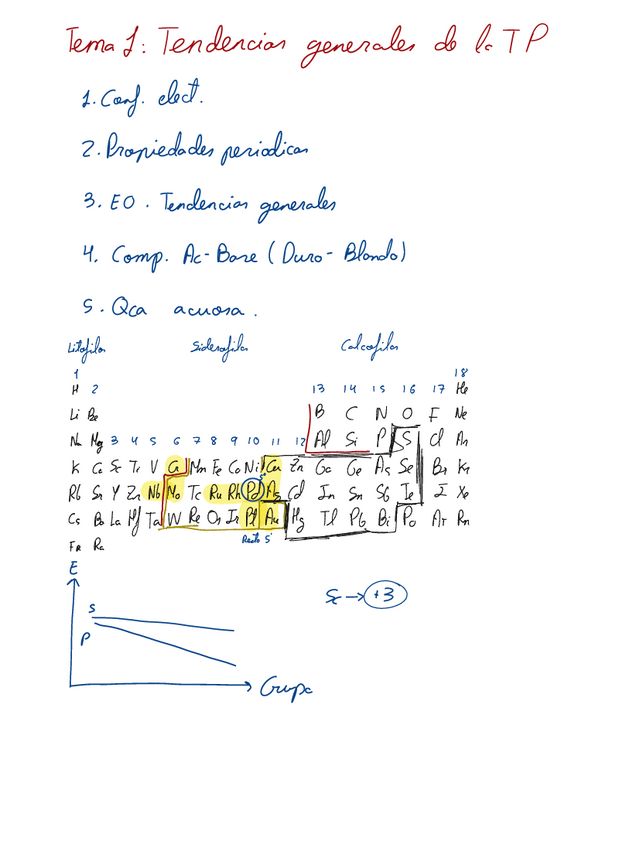 Tema 1: Tendencias generales de la TP
1. Conf. elect.
2. Propiedades periodicas
3. EO. Tendencias generales
4. Comp. Ac-Base (Duro-Blando)
5. Qca acuosa.
Litofilos Siderofilos Calcofilos
1 18
H 2 13 14 15 16 17 He
Li Be B C N O F Ne
Na Mg 3 4 5 6 7 8 9 10 11 12 Al Si P S Cl Ar
K Ca Sc Ti V Cr Mn Fe Co Ni Cu Zn Ga Ge As Se Br Kr
Rb Sr Y Zr Nb Mo Tc Ru Rh Pd Ag Cd In Sn Sb Te I Xe
Cs Ba La Hf Ta W Re Os Ir Pt Au Hg Tl Pb Bi Po At Rn
Fr Ra Resto s¹
E
S
P
Grupo
Sc → +3